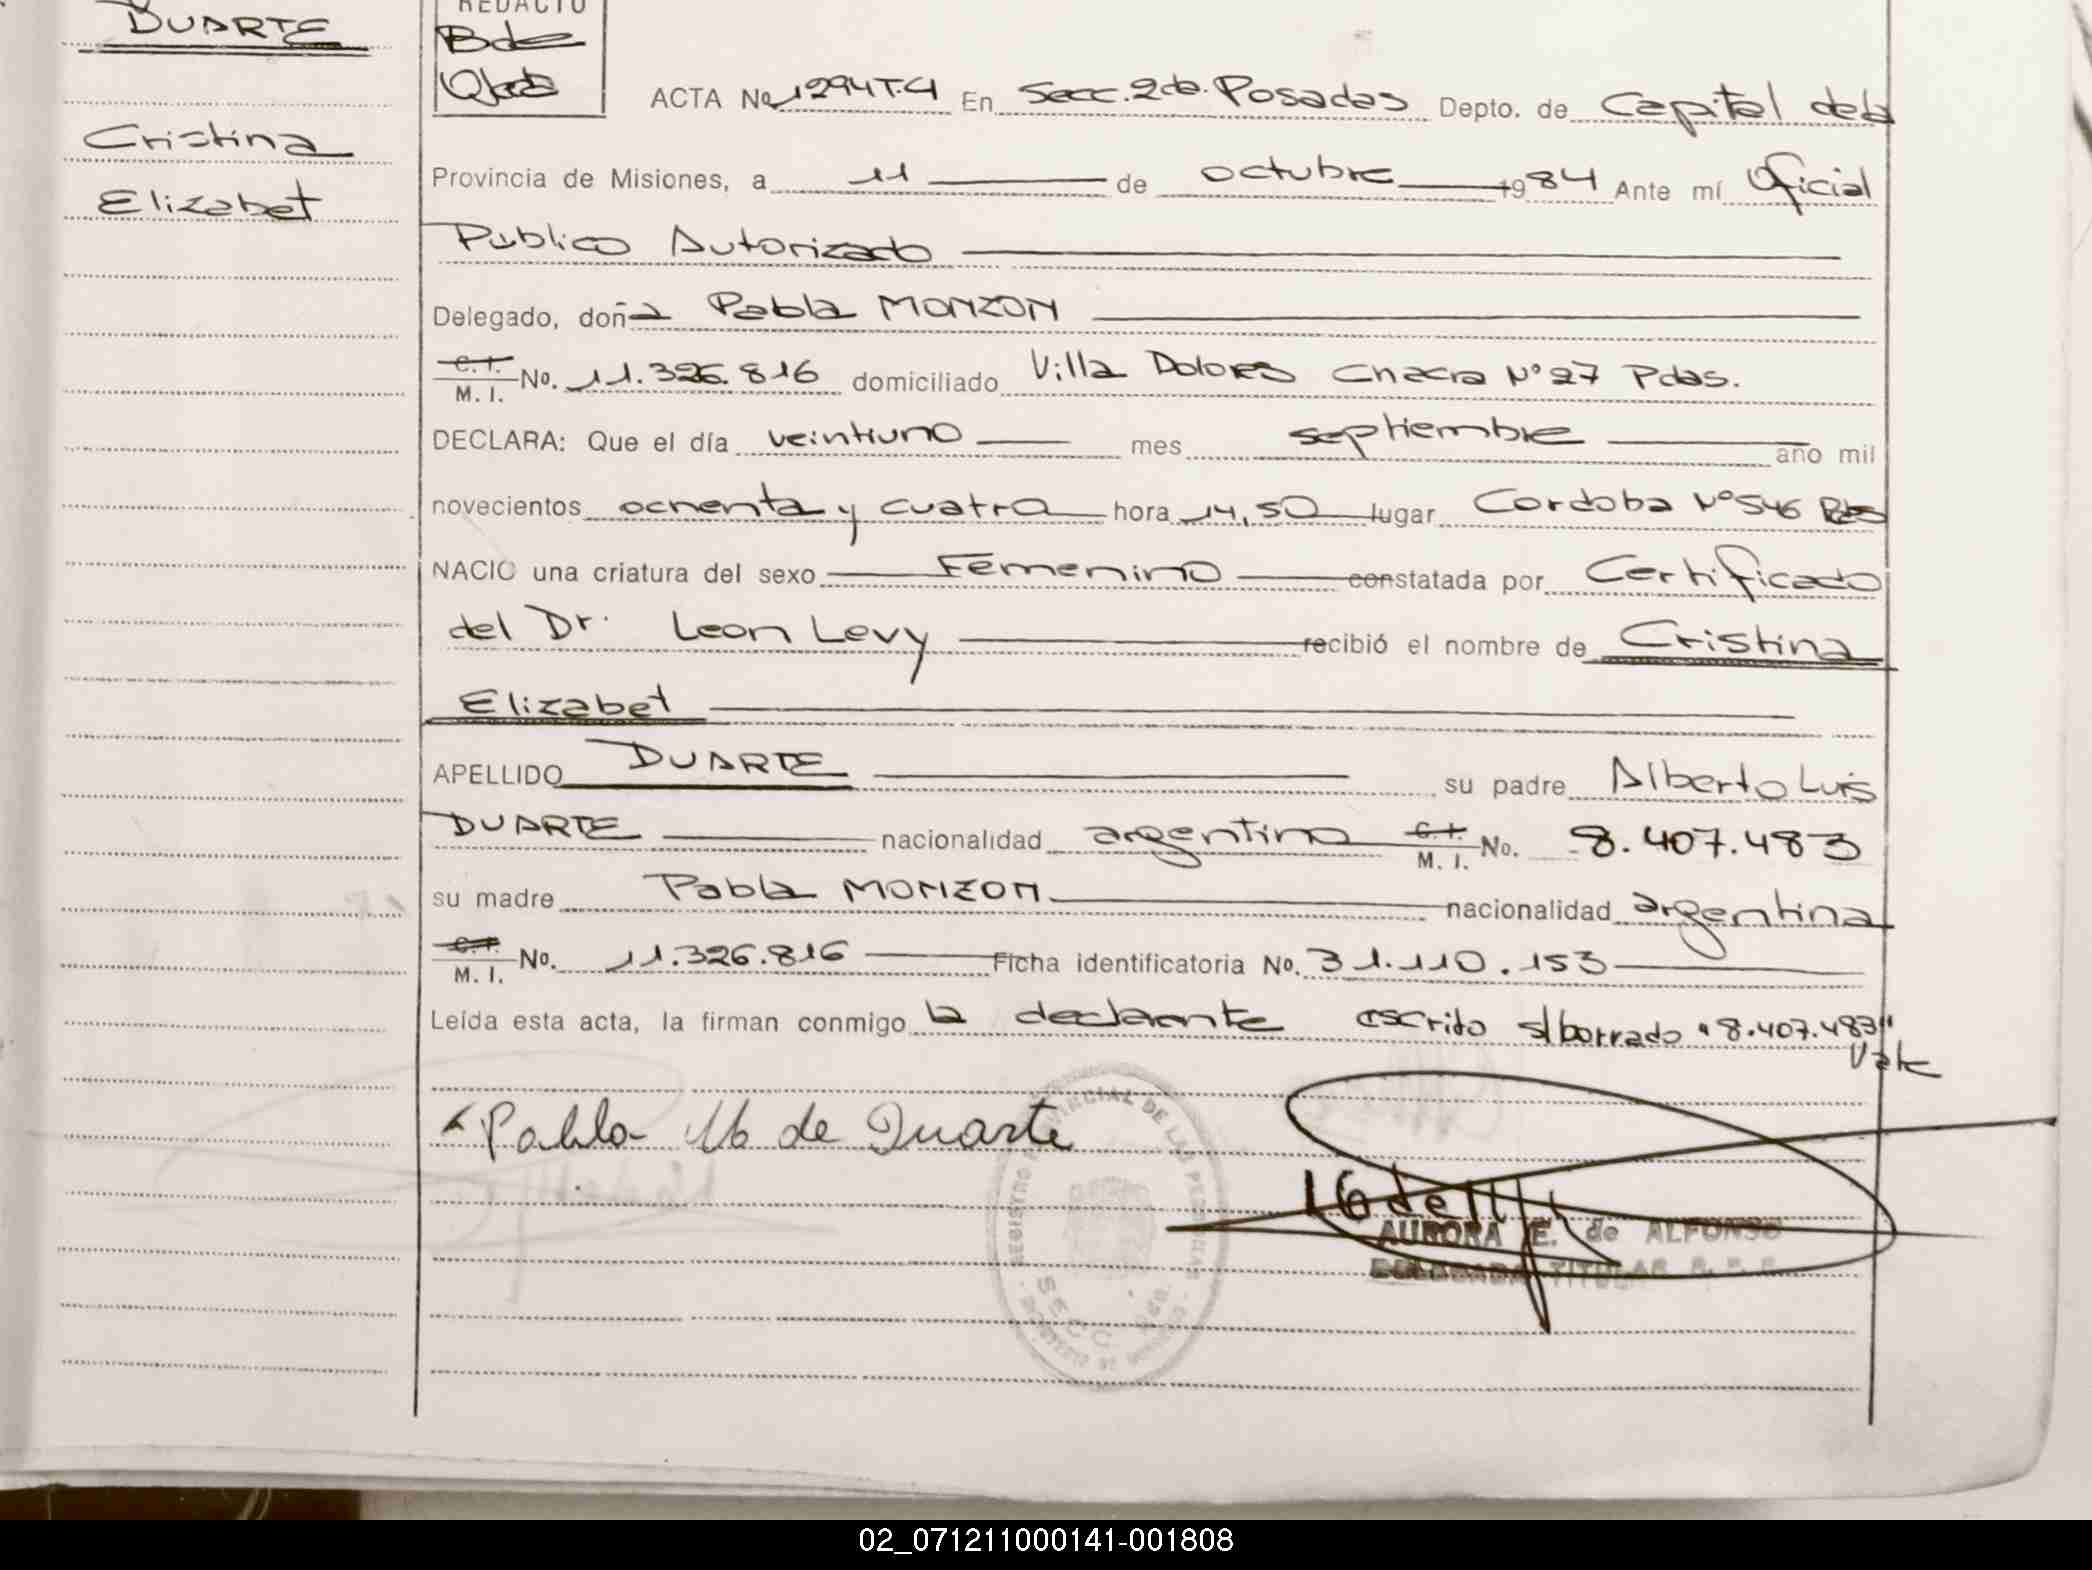 DUARTE
Cristina
Elizabet
REDACTO
ACTA No 1294 T.4 En Secc. 2da. Posadas Depto. de Capital de la
Provincia de Misiones, a 11 de octubre 1984 Ante mí Oficial
Público Autorizado
Delegado, doña Pabla MONZON
C. I. M. I. No. 11.326.816 domiciliado Villa Dolores Chacra Nº 27 Pdas.
DECLARA: Que el día veintiuno mes septiembre año mil
novecientos ochenta y cuatro hora 14,50 lugar Cordoba Nº 546 Pdas
NACIO una criatura del sexo Femenino constatada por Certificado
del Dr. Leon Levy recibió el nombre de Cristina
Elizabet
APELLIDO DUARTE su padre Alberto Luis
DUARTE nacionalidad argentino C. I. M. I. No. 8.407.483
su madre Pabla MONZON nacionalidad argentina
C. I. M. I. No. 11.326.816 Ficha identificatoria No. 31.110.153
Leída esta acta, la firman conmigo la declarante escrito s/borrado "8.407.483"
Vale
Pabla M de Duarte
REGISTRO PROVINCIAL DE LAS PERSONAS
SECC. 2da.
AURORA E. de ALFONSO
DELEGADA TITULAR R. P. P.
02_071211000141-001808